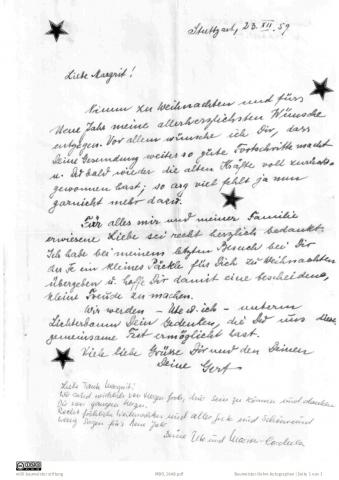 Stuttgart, 23. XII. 59
Liebe Margrit!
Nimm zu Weihnachten und fürs
Neue Jahr meine allerherzlichsten Wünsche
entgegen. Vor allem wünsche ich Dir, dass
Deine Gesundung weiter so gute Fortschritte macht
u. Du bald wieder die alten Kräfte voll
gewonnen hast; so arg viel fehlt ja nun
garnicht mehr dazu.
Für alles mir und meiner Familie
erwiesene Liebe sei recht herzlich bedankt.
Ich habe bei meinem letzten Besuch bei Dir
ein kleines Päckle für Dich zu Weihnachten
übergeben u. hoffe Dir damit eine bescheidene,
kleine Freude zu machen.
Wir werden - Ute u. ich - unterm
Lichterbaum Dein gedenken, die Du uns diese
gemeinsame Fest ermöglicht hast.
Viele liebe Grüsse Dir und den Deinen
Deine Gert
Liebe Tante Margrit!
Wir sind von Herzen froh, bei uns sein zu können und danken
Dir von ganzem Herzen.
Recht fröhliche Weihnachten und alles Gute und Schöne und
Segen fürs Neue Jahr
Deine Ute und
willi baumeister stiftung
Baumeister Archiv Autographen | Seite 1 von 1